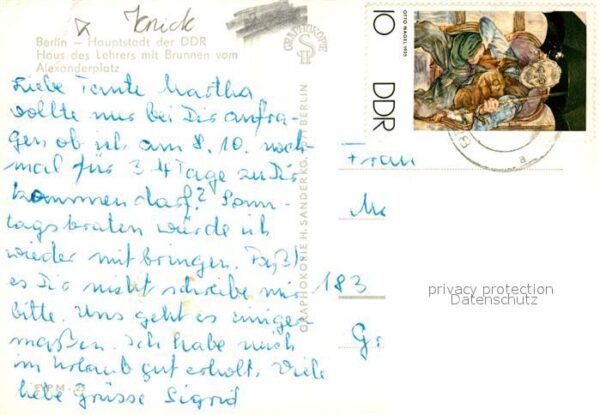 Knick
Berlin – Hauptstadt der DDR
Haus des Lehrers mit Brunnen vom
Alexanderplatz
Liebe Tante Martha
wollte nur bei Dir anfra-
gen ob ich am 8. 10. noch
mal für 3-4 Tage zu Dir
kommen darf? Sonn-
tagsbraten würde ich
wieder mitbringen. Paßt
es Dir nicht schreibe mir
bitte. Uns geht es einiger
maßen. Ich habe mich
im Urlaub gut erholt. Viele
liebe Grüsse Sigrid
GRAPHOKOPIE
GRAPHOKOPIE H. SANDER KG, BERLIN
OTTO NAGEL
10
DDR
Frau
183
privacy protection
Datenschutz